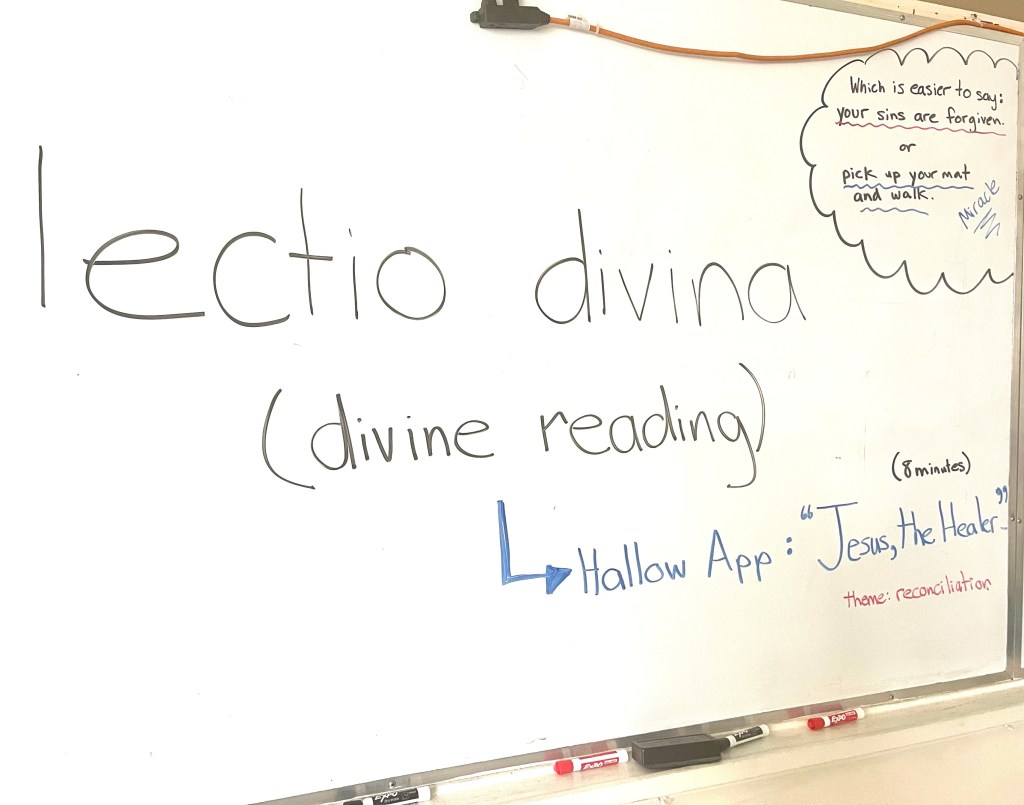 Which is easier to say:
your sins are forgiven.
or
pick up your mat
and walk.
Miracle
lectio divina
(divine reading)
(8 minutes)
Hallow App: "Jesus, the Healer"
theme: reconciliation
EXPO
EXPO
EXPO
EXPO